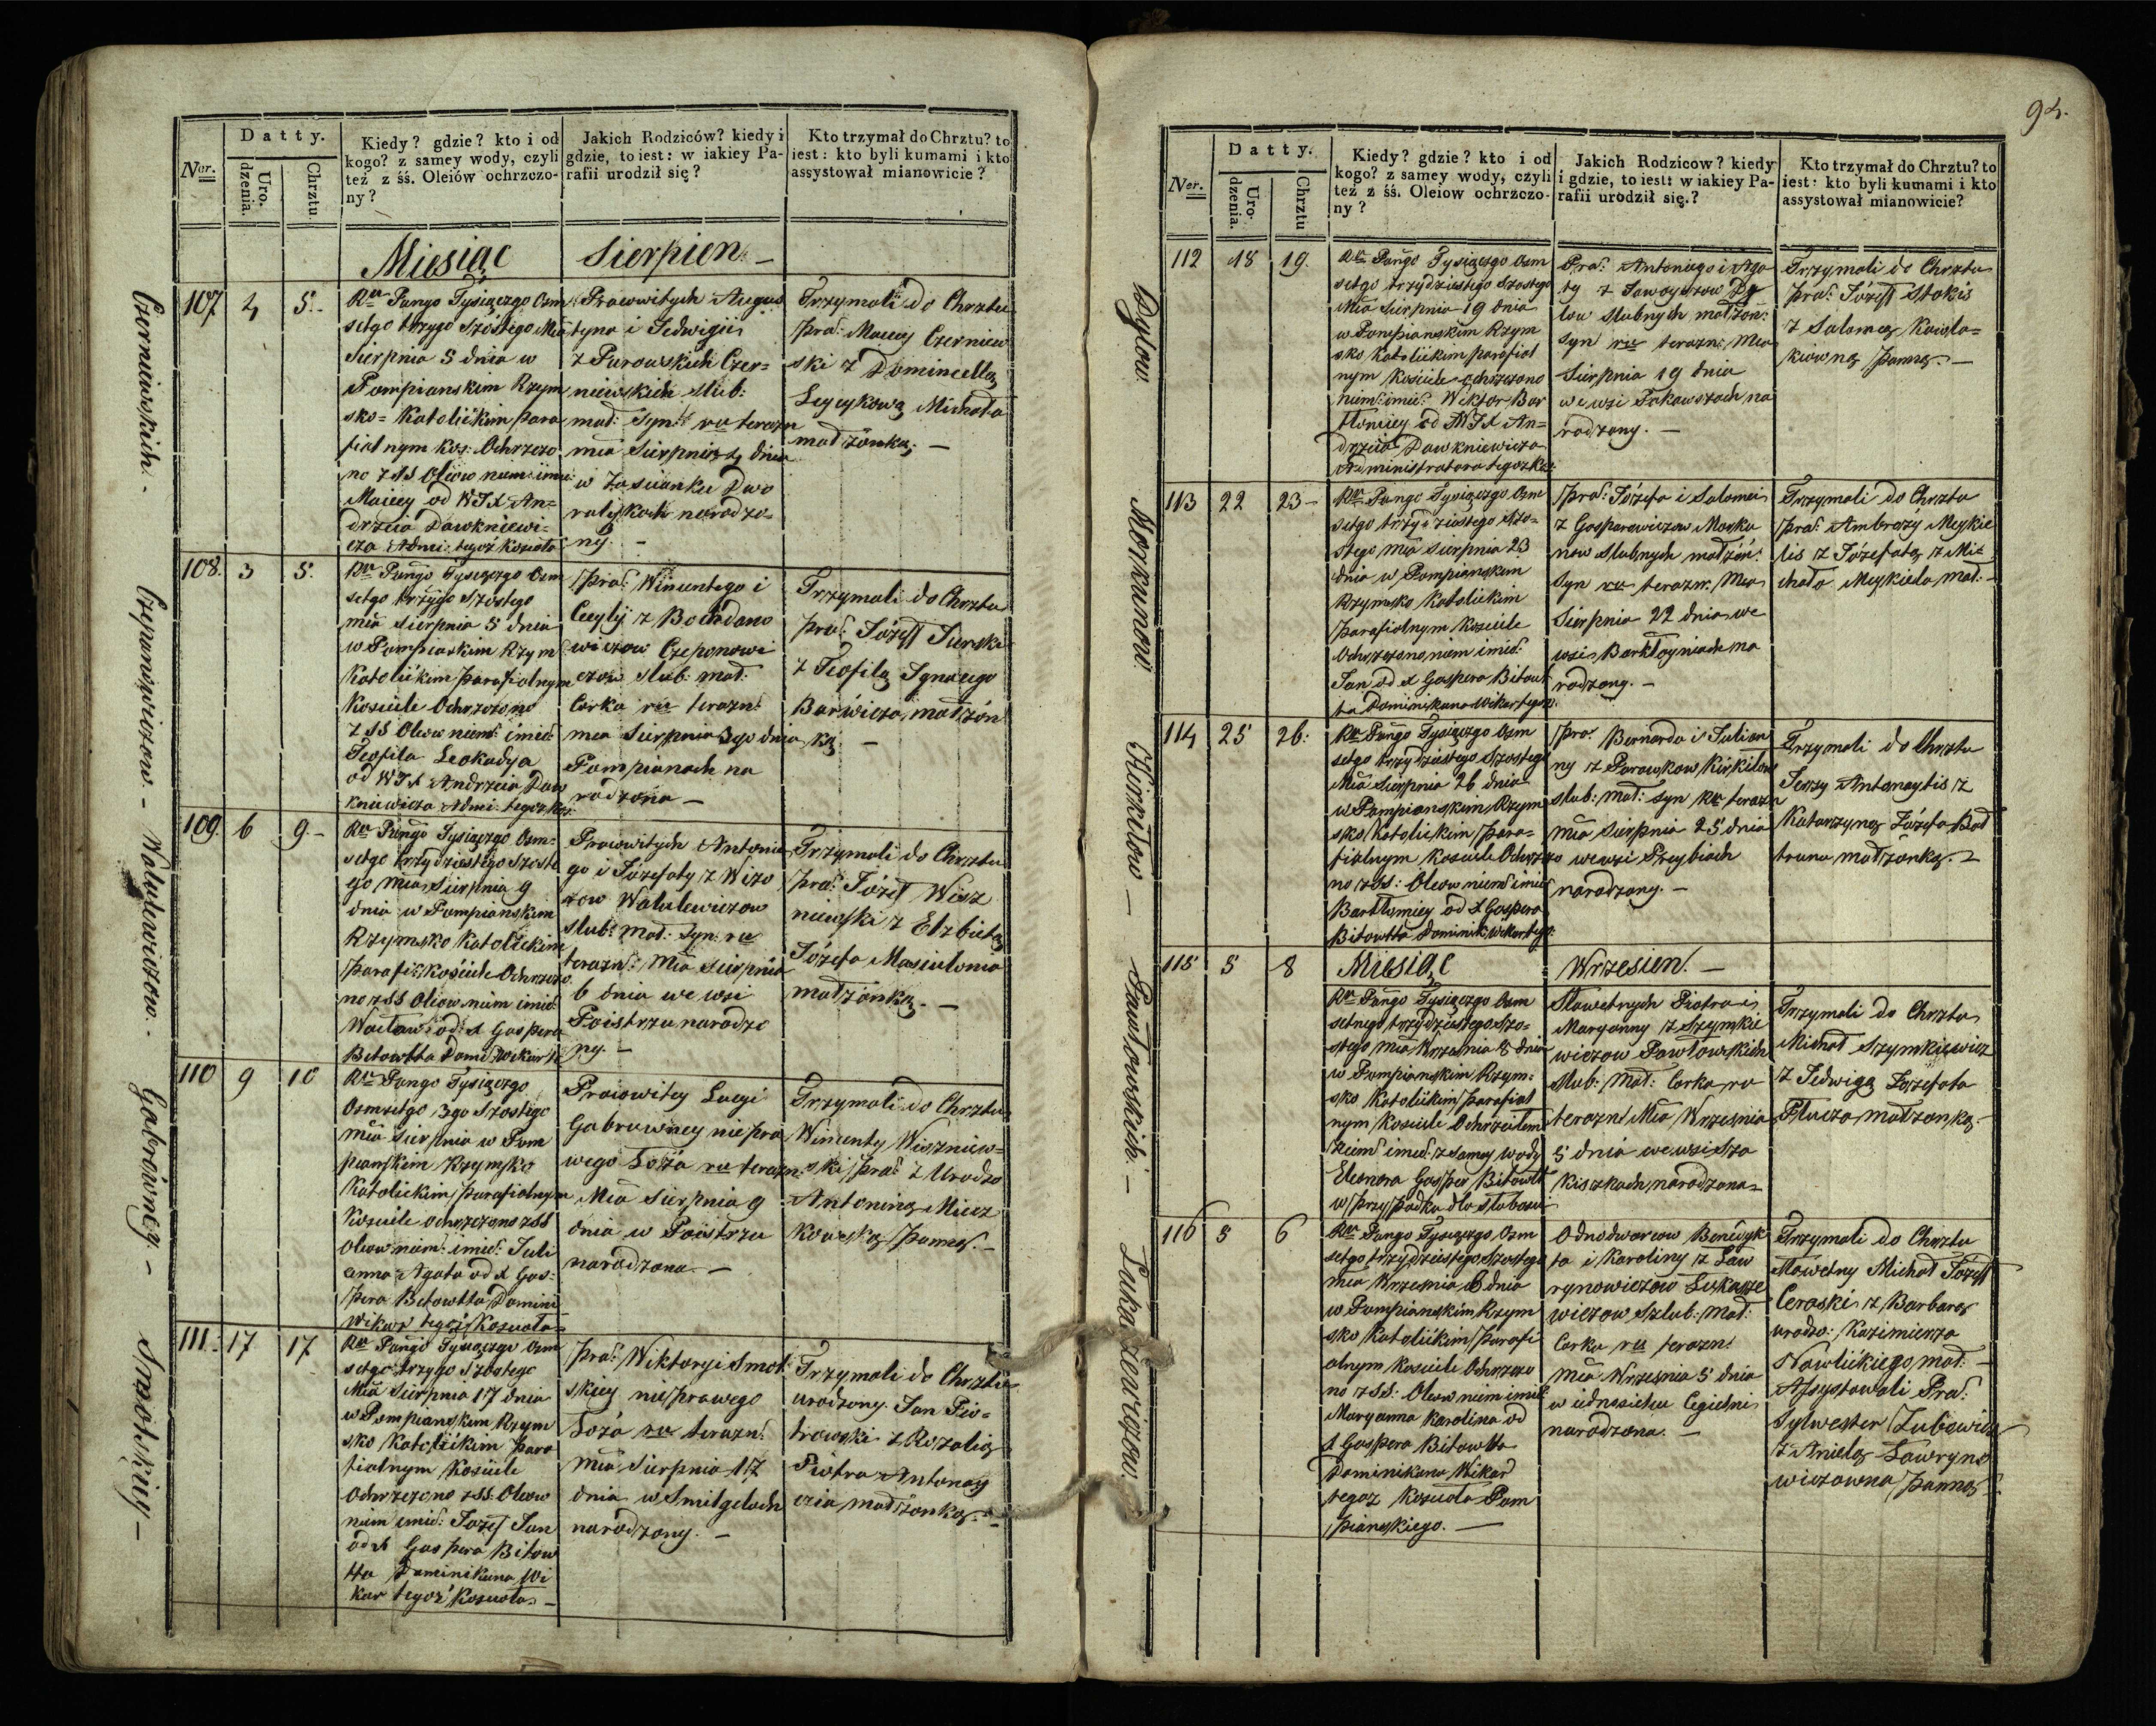 Czerniewskich. -
Czeponowiczow. -
Walulewiczow. -
Gabrowney. -
Smolskiey -
Ner.
Datty.
Uro.
dzenia.
Chrztu.
Kiedy? gdzie? kto i od
kogo? z samey wody, czyli
też z śś. Oleiów ochrzczo-
ny?
Jakich Rodziców? kiedy i
gdzie, to iest: w iakiey Pa-
rafii urodził się?
Kto trzymał do Chrztu? to
iest: kto byli kumami i kto
assystował mianowicie?
Miesiąc Sierpien. -
107 4 5. -
Ru Pango Tysiączgo Osm
setgo trzygo Szóstego Mia
Sierpnia 5 dnia w
Pompianskim Rzym
sko= Katolickim para
fialnym Kos: Ochrzczo
no z SS Oliow niem: imie:
Maciey od WJX An=
drzeia Dawkniewi=
cza Admi: tegoż Koscioła
Prawowitych Augus
tyna i Jedwigii
z Purauskich Czer=
niewskich slub:
mał: Syn ru terazn
mia Sierpnia 4 dnia
w Zascianku Dwo
raliszkach narodzo=
ny. -
Trzymali do Chrztu
pra: Maciey Czerniew
ski z Domincellą
Leycykową Michała
małżonką. -
108. 3 5.
Ru Pango Tysiączgo Osm
setgo trzygo Szostego
mia Sierpnia 5 dnia
w Pompianskim Rzym
Katolickim Parafialnym
Kosciele Ochrzczono
z SS Oliow niem: imie:
Teofila Leokadya
od WJX Andrzeia Daw
kniewicza Admi: tegoz Kos:
pra: Wincentego i
Cecylij z Bohdano
wiczow Czeponowi
czow slub: mał:
Corka ru terazn:
mca Sierpnia 3go dnia
Pompianach na
rodzona -
Trzymali do Chrztu
pra: Józeff Surski
z Teofilą Ignacego
Barwicza, małżon
ką. -
109. 6 9. -
Ru Pango Tysiączgo Osm=
setgo trzydziestego Szoste
go mia Sierpnia 9
dnia w Pompianskim
Rzymsko Katolickim
Parafi: Kościele Ochrzczo
no z SS Oliow niem imie:
Wacław od X Gaspera
Bitowtta Domi: Wikar te
Prawowitych Antonie
go i Józefaty z Wizo
row Walulewiczow
slub: mał: Syn: ru
terazn: Mia Sierpnia
6 dnia we wsi
Poistrzu narodzo
ny. -
Trzymali do Chrztu
pra: Józeff Wisz
niewski z Elzbietą
Józefa Masiulonia
małżonką. -
110 9 10
Ru Pango Tysiączgo
Osmsetgo 3go Szostego
mia Sierpnia w Pom
pianskim Rzymsko
Katolickim Parafialnym
Kosciele ochrzczono z SS
Oliow niem: imie: Juli
anna Agata od X Gas=
pera Bitowtta Domini
Wikar tegoż Kosciola=
Prawowitey Lucyi
Gabrowney niepra
wego Łoża ru terazn:
Mia Sierpnia 9
dnia w Poistrzu
narodzona. -
Trzymali do Chrztu
Wincenty Wiszniew=
ski pra: z Urodzo
Antoniną Micz
kowską Panną. -
111. 17 17
Ru Pango Tysiączgo Osm
setgo trzygo Szostego
Mia Sierpnia 17 dnia
w Pompianskim Rzym
sko Katolickim Para
fialnym Kosciele
Ochrzczono z SS. Oliow
niem imie: Jozef Jan
od X Gaspera Bitow
tta Dominikana Wi
kar tegoż Kosciola. -
pra: Wiktoryi Smol
skiey nieprawego
Łoża ru terazn:
Mia Sierpnia 17
dnia w Smilgelach
narodzony. -
Trzymali do Chrztu
urodzony Jan Pio=
trowski z Rozalią
Piotra Antonay
cia małżonką. -
94.
Dylow.
Morkunow.
Kirkiłow -
Pawłowskich. -
Łukaszewiczow.
Ner.
Datty.
Uro-
dzenia.
Chrztu
Kiedy? gdzie? kto i od
kogo? z samey wody, czyli
też z śś. Oleiow ochrzczo-
ny?
Jakich Rodzicow? kiedy
i gdzie, to iest: w iakiey Pa-
rafii urodził się.?
Kto trzymał do Chrztu? to
iest: kto byli kumami i kto
assystował mianowicie?
112 18 19.
Ru Pango Tysiączgo Osm
setgo trzydziestego Szostego
Mia Sierpnia 19 dnia
w Pompianskim Rzym
sko Katolickim parafial
nym Kosciele ochrzczono
niem: imie: Wiktor Bar
tłomiey od WJX An=
drzeia Dawkniewicza
Administratora tegoz Kos:
Pra: Antoniego i Aga
ty z Jawoyszow Dy
low Slubnych małżon:
Syn ru terazn: Mca
Sierpnia 19 dnia
we wsi Pokowszach na
rodzony. -
Trzymali do Chrztu
pra: Józeff Stokis
z Salomeą Kowla=
kiowną Panną. -
113 22 23 -
Ru Pango Tysiączgo Osm
setgo trzydziestego Szo=
stego mia Sierpnia 23
dnia w Pompianskim
Rzymsko Katolickim
Parafialnym Kosciele
Ochrzczono, niem imie:
Jan od X Gaspera Bitowt
ta Dominikana Wikar tegoz:
pra: Józefa i Salomei
z Gasparowiczow Morku
now Slubnych małżon:
Syn ru terazn: Mca
Sierpnia 22 dnia we
wsi Barkłoyniach na
rodzony. -
Trzymali do Chrztu
pra: Ambroży Meykie
lis z Józefatą z Mi=
chała Meykiela mał: -
114 25 26.
Ru Pango Tysiączgo Osm
setgo trzydziestego Szostego
Mia Sierpnia 26 dnia
w Pompianskim Rzym
sko Katolickim Para=
fialnym Kosciele Ochrzczo
no z SS: Oliow niem: imie:
Bartłomiey od X Gaspera
Bitowtta Dominik: Wikar tego:
pra: Bernarda i Julian
ny z Parowkow Kirkiłow
slub: mał: Syn ru terazn
Mia Sierpnia 25 dnia
we wsi Preybiach
narodzony. -
Trzymali do Chrztu
Jerzy Antonaytis z
Katarzyną Józefa Bał
truna małżonką. -
115 5 8
Miesiąc Wrzesien. -
Ru Pango Tysiączgo Osm
setnego trzydziestego Szo=
stego mia Wrzesnia 8 dnia
w Pompianskim Rzym=
sko Katolickim Parafial
nym Kosciele Ochrzciłem
niem: imie: z samey wody
Eleonora Gasper Bitowtt
w przypadku dla słabosci
Sławetnych Piotra i
Maryanny z Szymkie
wiczow Pawłowskich
Slub: Mał: Corka ru
terazn: Mia Wrzesnia
5 dnia we wsi Sza
kiszkach narodzona=
Trzymali do Chrztu
Michał Szymkiewicz
z Jedwigą Jozefata
Płucza małżonką. -
116 5 6
Ru Pango Tysiączgo Osm
setgo trzydziestego Szostego
mia Wrzesnia 6 dnia
w Pompianskim Rzym
sko Katolickim Parafi
alnym Kosciele Ochrzczo
no z SS: Oliow niem imie:
Maryanna Karolina od
X Gaspera Bitowtta
Dominikana Wikar
tegoz Kosciola Pom
pianskiego. -
Odnodworcow Benedyk
ta i Karoliny z Ław
rynowiczow Łukasze
wiczow Szlub: Mał:
Corka ru terazn:
Mia Wrzesnia 5 dnia
w iednosielu Cegielni
narodzona. -
Trzymali do Chrztu
Sławetny Michał Józeff
Ceraski z Barbarą
urodzo: Kazimierza
Nawlickiego, mał: -
Assystowali Pra:
Sylwester Zubowicz
z Anielą Ławryno
wiczowną Panną.